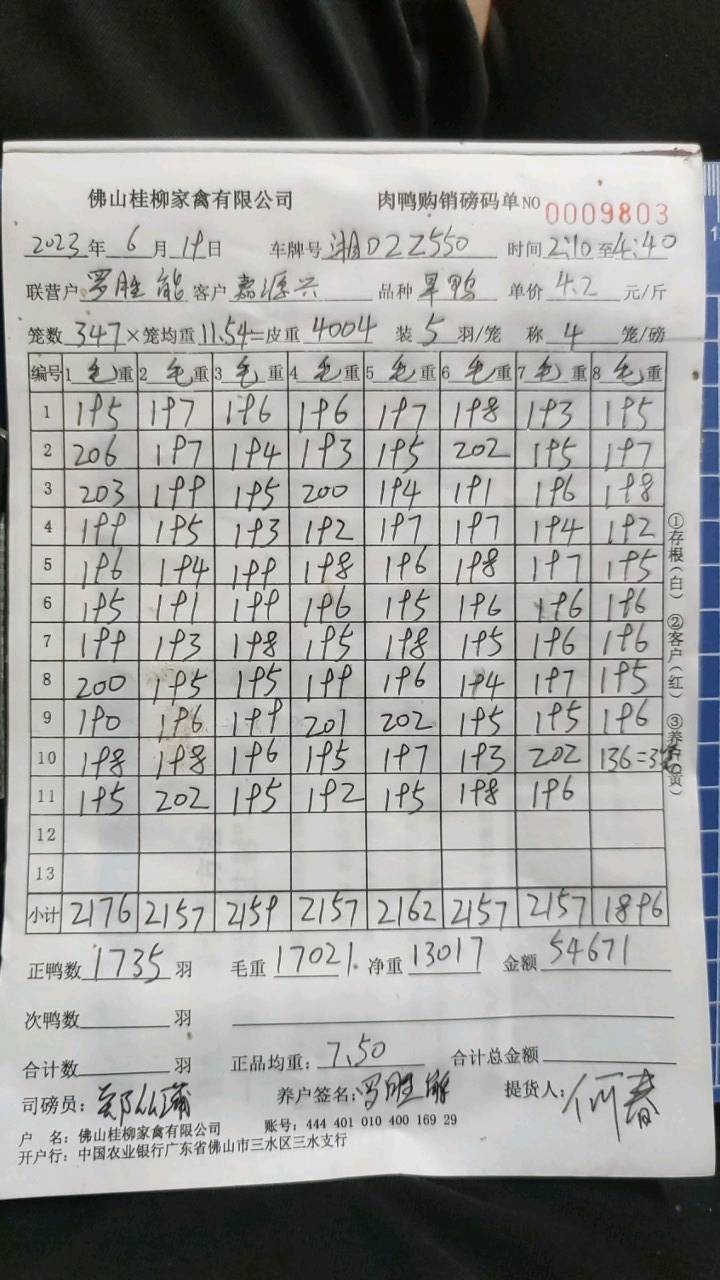 佛山桂柳家禽有限公司 肉鸭购销磅码单 NO 0009803
2023年6月19日 车牌号 湘D2Z550 时间 2:10至4:40
联营户 罗胜能 客户 嘉源兴 品种 旱鸭 单价 4.2 元/斤
笼数 347×笼均重 11.54=皮重 4004 装 5 羽/笼 称 4 笼/磅
编号 1 毛重 2 毛重 3 毛重 4 毛重 5 毛重 6 毛重 7 毛重 8 毛重
1 195 197 196 196 197 198 193 195
2 206 197 194 193 195 202 195 197
3 203 199 195 200 194 191 196 198
4 199 195 193 192 197 197 194 192
5 196 194 199 198 196 198 197 195
6 195 191 199 196 195 196 196 196
7 199 193 198 195 198 195 196 196
8 200 195 195 199 196 194 197 195
9 190 196 199 201 202 195 195 196
10 198 198 196 195 197 193 202 136=3笼
11 195 202 195 192 195 198 196
12
13
小计 2176 2157 2159 2157 2162 2157 2157 1896
①存根(白) ②客户(红) ③养户(黄)
正鸭数 1735 羽 毛重 17021. 净重 13017 金额 54671
次鸭数 羽
合计数 羽 正品均重: 7.50 合计总金额
司磅员: 郑 养户签名: 罗胜能 提货人: 何春
户 名: 佛山桂柳家禽有限公司 账号: 444 401 010 400 169 29
开户行: 中国农业银行广东省佛山市三水区三水支行